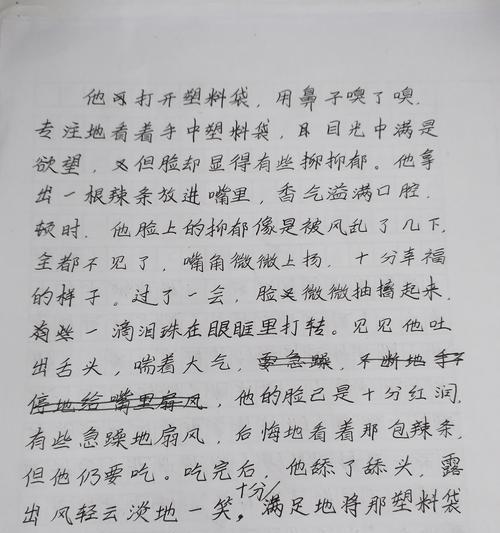 他打开塑料袋，用鼻子嗅了嗅.
专注地看着手中塑料袋，目光中满是
欲望，但脸却显得有些抑抑郁。他拿
出一根辣条放进嘴里，香气溢满口腔.
顿时.他脸上的抑郁像是被风乱了几下，
全都不见了，嘴角微微上扬，十分幸福
的样子。过了一会，脸又微微抽搐起来，
一滴泪珠在眼眶里打转。见见他吐
出舌头，喘着大气，要急躁，不断地手
停地给嘴里扇风，他的脸已是十分红润，
有些急躁地扇风，后悔地看着那包辣条，
但他仍要吃。吃完后，他舔了舔头，露
出风轻云淡地一笑，十分满足地将那塑料袋